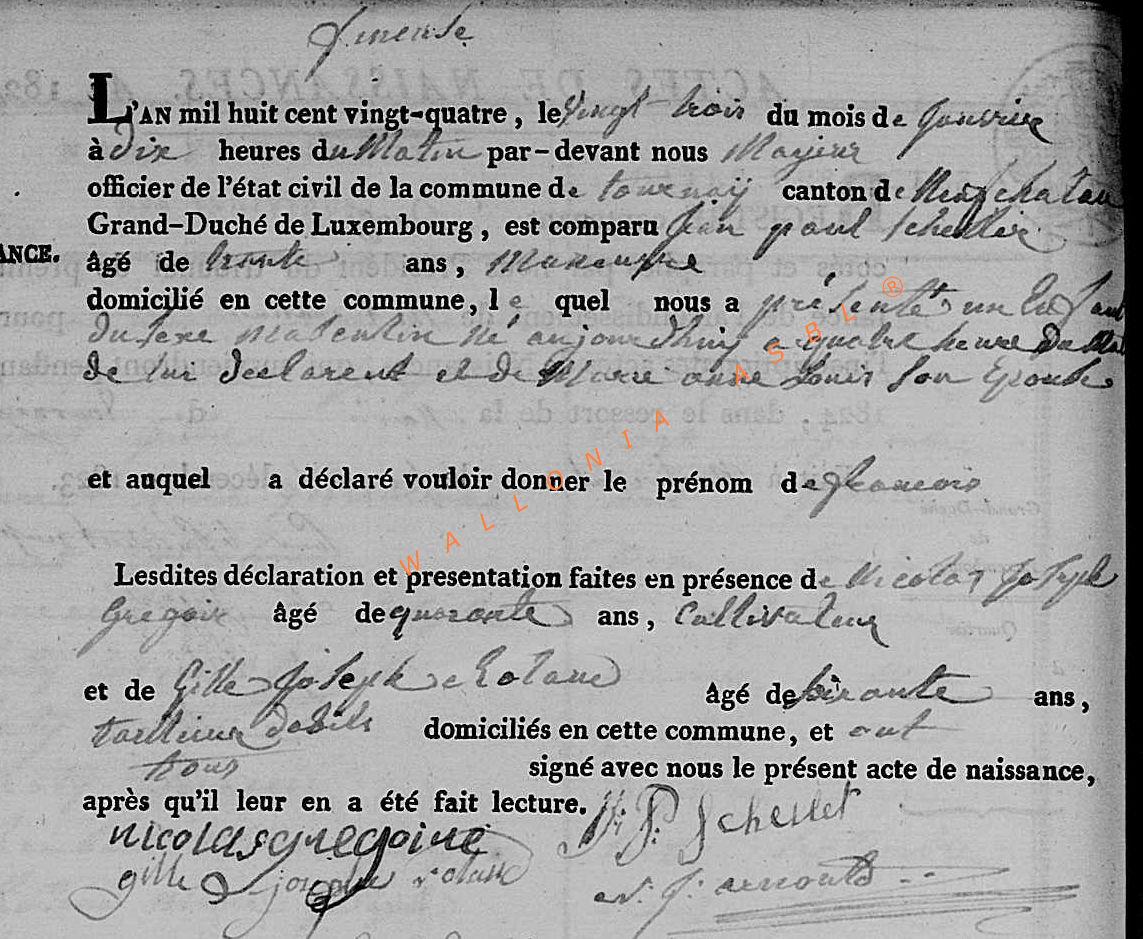 L'AN mil huit cent vingt-quatre, le vingt trois du mois de Janvier
à dix heures du Matin par-devant nous Mayeur
officier de l'état civil de la commune de tournay canton de Neufchateau
Grand-Duché de Luxembourg, est comparu Jean paul Scheller
ANCE.
âgé de trente ans, Manoeuvre
domicilié en cette commune, le quel nous a présenté un Enfant
du sexe Masculin né aujourdhuy a quatre heure Du Mat
de lui Declarent et de Marie anne Louis son Epouse
et auquel a déclaré vouloir donner le prénom de francois
Lesdites déclaration et presentation faites en présence de Nicolas Joseph
Gregoire âgé de quarante ans, Cultivateur
et de Gille Joseph Rolans âgé de soixante ans,
tailleur dabits domiciliés en cette commune, et ont
tous signé avec nous le présent acte de naissance,
après qu'il leur en a été fait lecture.
J. P. Scheller
nicolas gregoire
gille joseph
N. J. arnould
WALLONIA ASBL ®